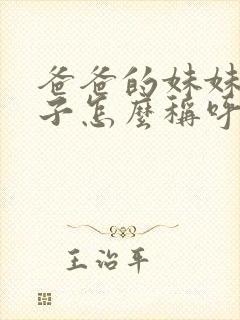 爸爸的妹妹
子怎麼稱呼
王治平